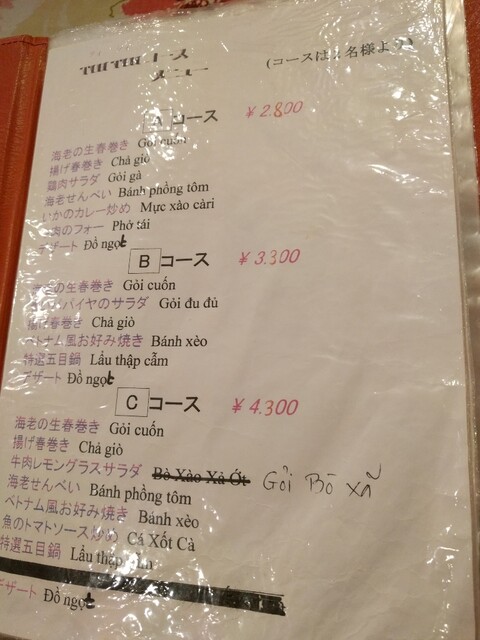 コース
メニュー
(コースは 名様より)
A コース ¥2.800
海老の生春巻き Gỏi cuốn
揚げ春巻き Chả giò
鶏肉サラダ Gỏi gà
海老せんべい Bánh phồng tôm
いかのカレー炒め Mực xào càri
肉のフォー Phở tái
デザート Đồ ngọt
B コース ¥3.300
の生春巻き Gỏi cuốn
パイヤのサラダ Gỏi đu đủ
揚げ春巻き Chả giò
ベトナム風お好み焼き Bánh xèo
特選五目鍋 Lẩu thập cẩm
デザート Đồ ngọt
C コース ¥4.300
海老の生春巻き Gỏi cuốn
揚げ春巻き Chả giò
牛肉レモングラスサラダ Bò Xào Xả Ớt Gỏi Bò xã
海老せんべい Bánh phồng tôm
ベトナム風お好み焼き Bánh xèo
魚のトマトソース炒め Cá Xốt Cà
特選五目鍋 Lẩu thập cẩm
デザート Đồ ngọt